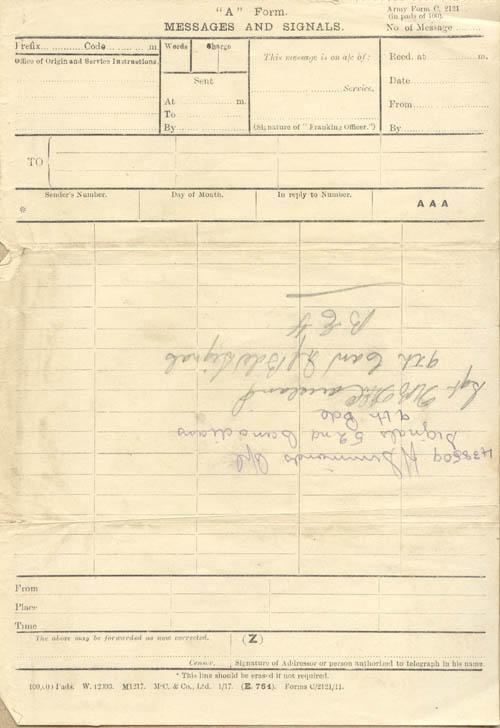 "A" Form.
MESSAGES AND SIGNALS.
Army Form C. 2121
(in pads of 100).
No of Message
Prefix Code m
Office of Origin and Service Instructions.
Words Charge
Sent
At m.
To
By
This message is on a/c of:
Service.
(Signature of "Franking Officer.")
Recd. at m.
Date
From
By
TO
Sender's Number. Day of Month. In reply to Number. AAA
*
438509 H Simmonds Cpl
Signals 52nd Canadians
9th Bde
Sgt.
9th Can Inf Bde Signals
B E F
From
Place
Time
The above may be forwarded as now corrected. (Z)
Censor. Signature of Addressor or person authorized to telegraph in his name
* This line should be erased if not required.
Pads. W. 12393. M1217. McC. & Co., Ltd. 1/17. (E. 754). Forms C/2121/11.